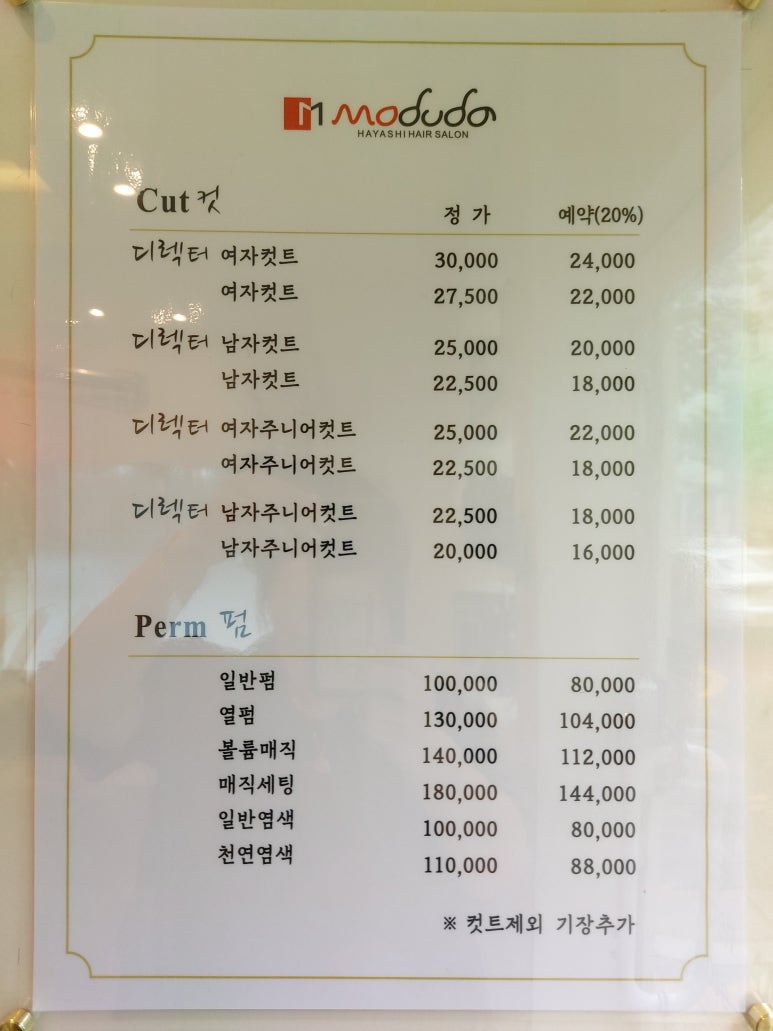 moduda
HAYASHI HAIR SALON
Cut 컷 정 가 예약(20%)
디렉터 여자컷트 30,000 24,000
여자컷트 27,500 22,000
디렉터 남자컷트 25,000 20,000
남자컷트 22,500 18,000
디렉터 여자주니어컷트 25,000 22,000
여자주니어컷트 22,500 18,000
디렉터 남자주니어컷트 22,500 18,000
남자주니어컷트 20,000 16,000
Perm 펌
일반펌 100,000 80,000
열펌 130,000 104,000
볼륨매직 140,000 112,000
매직세팅 180,000 144,000
일반염색 100,000 80,000
천연염색 110,000 88,000
※ 컷트제외 기장추가